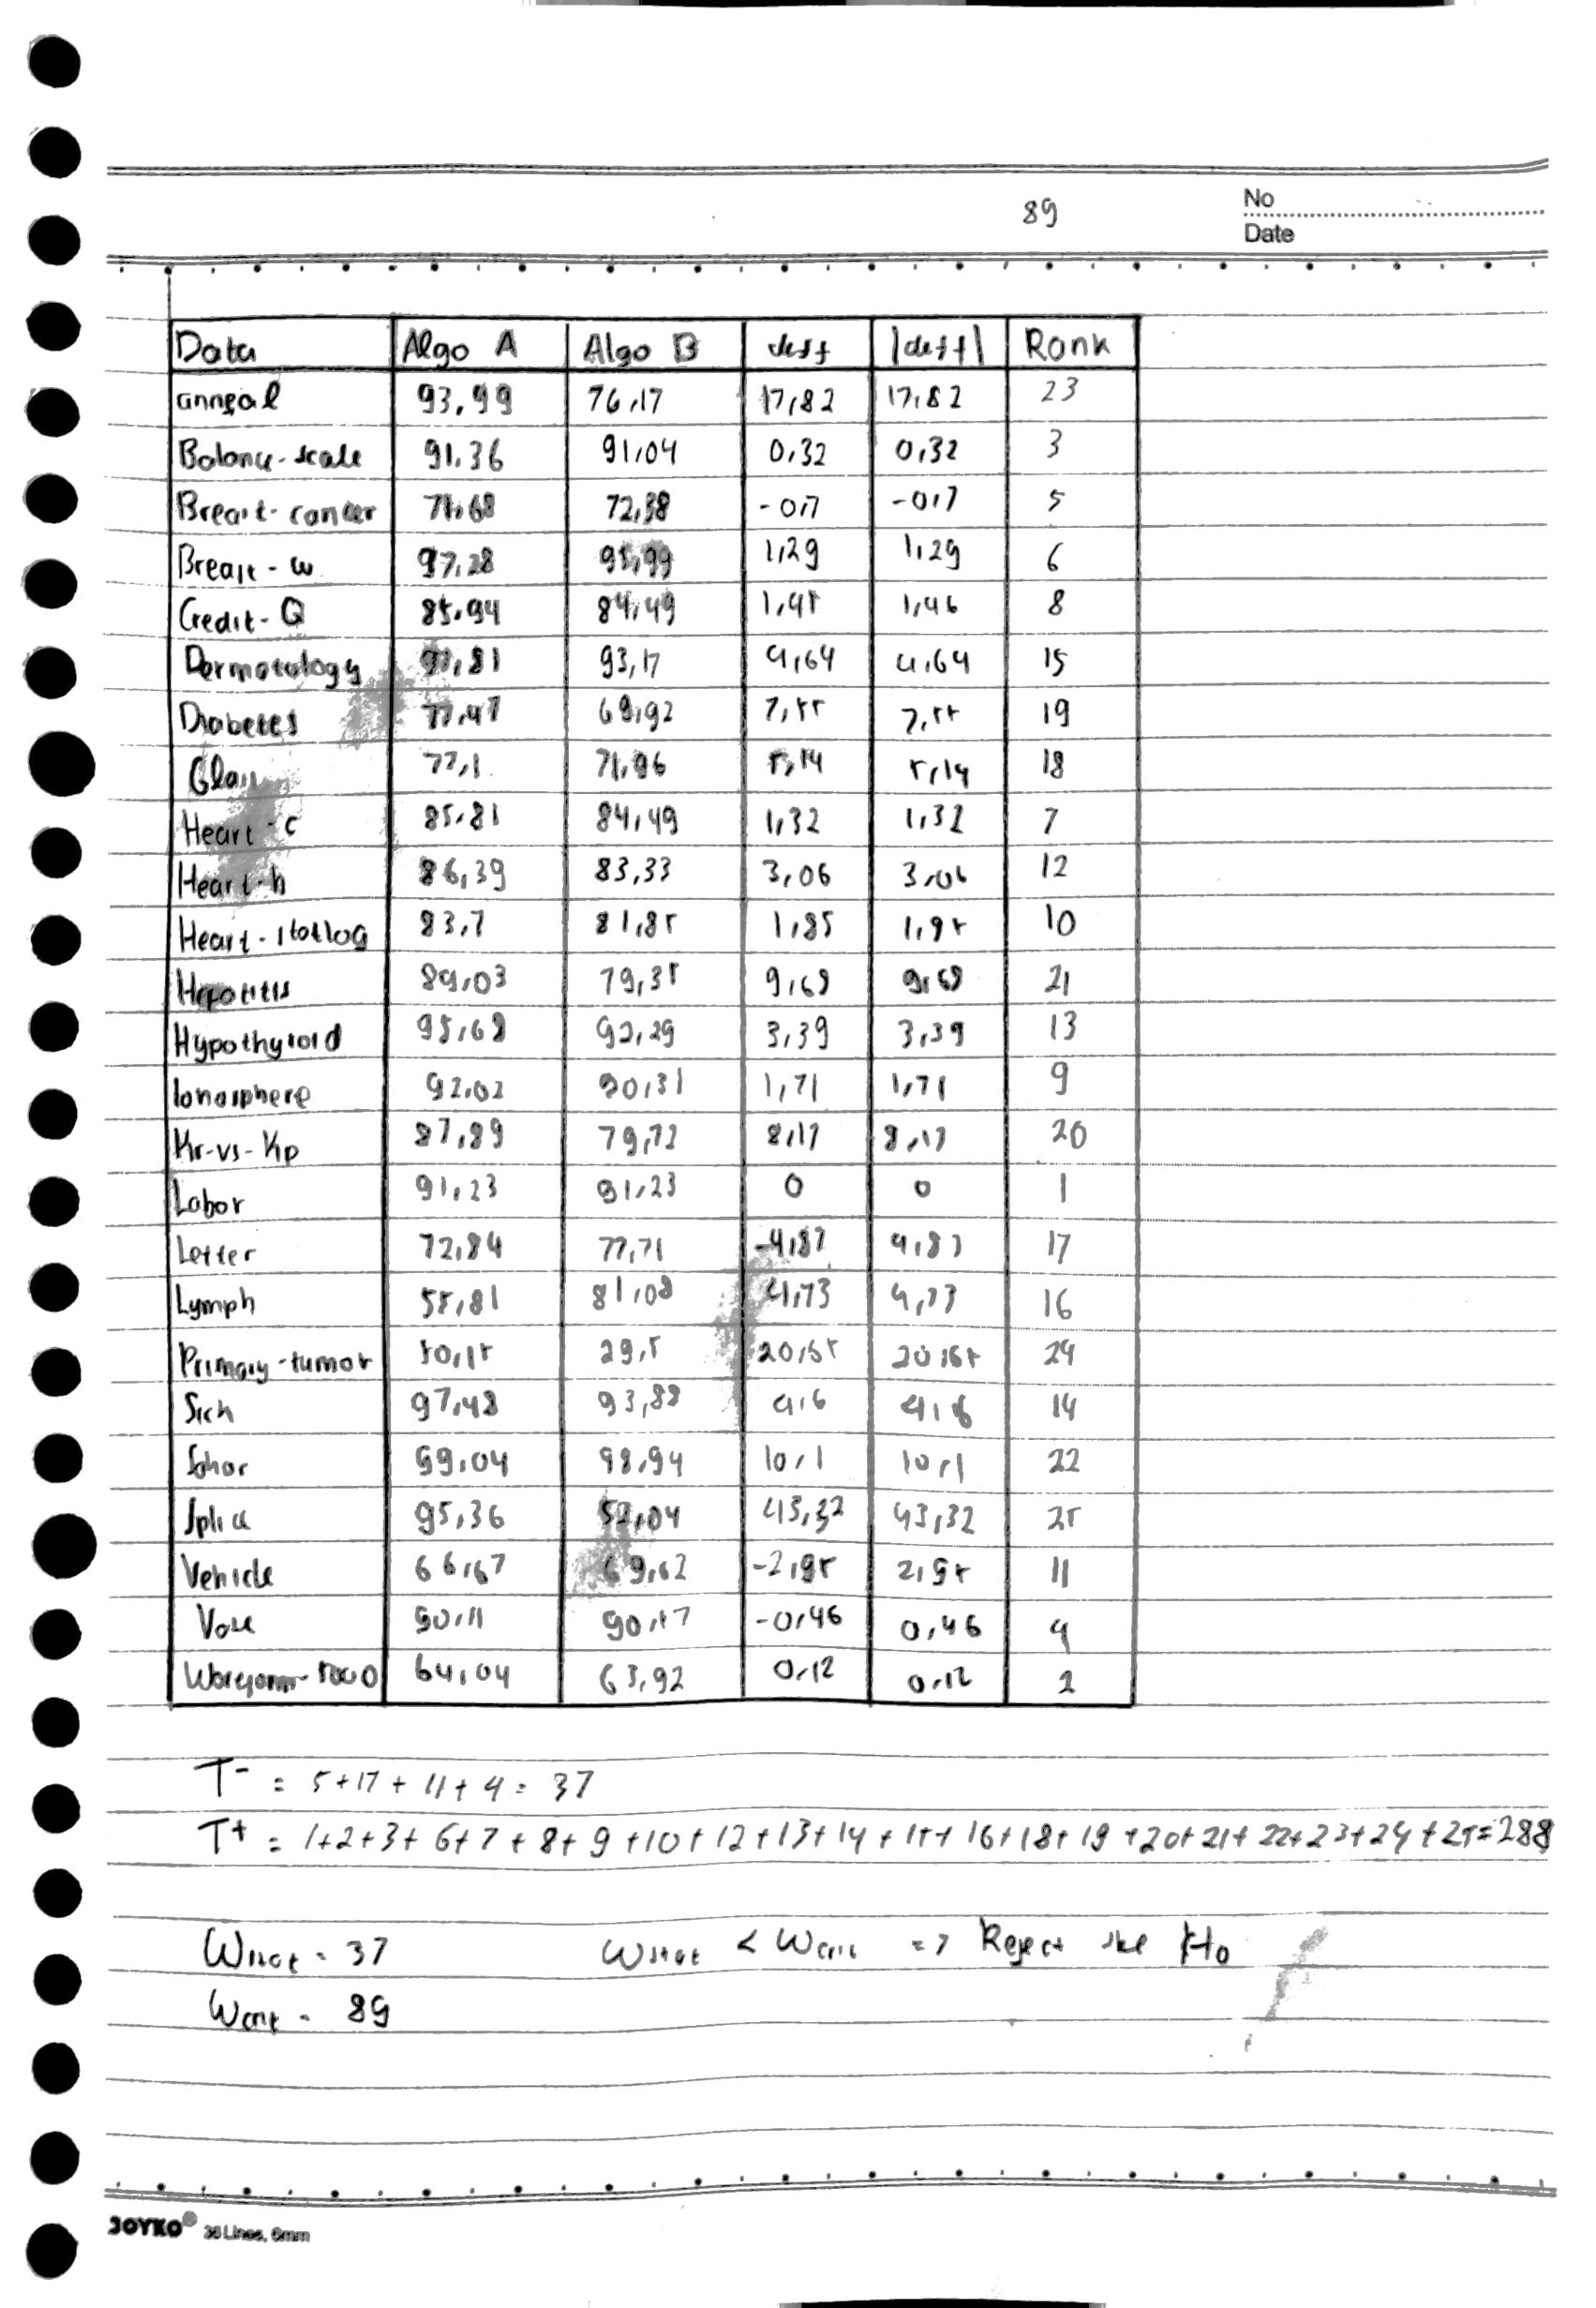 89
No
Date
Data Algo A Algo B deff |deff| Rank
anneal 93,99 76,17 17,82 17,82 23
Balance-scale 91,36 91,04 0,32 0,32 3
Breast-cancer 71,68 72,38 -0,7 -0,7 5
Breast-w 97,28 95,99 1,29 1,29 6
Credit-G 85,94 84,49 1,45 1,46 8
Dermatology 97,81 93,17 4,64 4,64 15
Diabetes 77,47 69,92 7,55 7,55 19
Glass 77,1 71,96 5,14 5,14 18
Heart-c 85,81 84,49 1,32 1,32 7
Heart-h 86,39 83,33 3,06 3,06 12
Heart-statlog 83,7 81,85 1,85 1,95 10
Hepatitis 89,03 79,35 9,68 9,68 21
Hypothyroid 95,68 92,29 3,39 3,39 13
Ionosphere 92,02 90,31 1,71 1,71 9
Kr-vs-Kp 87,89 79,72 8,17 8,17 20
Labor 91,23 91,23 0 0 1
Letter 72,84 77,71 -4,87 4,87 17
Lymph 55,81 81,08 4,73 4,73 16
Primary-tumor 50,15 29,5 20,65 20,65 24
Sick 97,48 93,88 4,6 4,6 14
Sonar 59,04 98,94 10,1 10,1 22
Splice 95,36 52,04 43,32 43,32 25
Vehicle 66,67 69,62 -2,95 2,95 11
Vote 90,11 90,57 -0,46 0,46 4
Waveform-5000 64,04 63,92 0,12 0,12 2
T- = 5+17+11+4 = 37
T+ = 1+2+3+6+7+8+9+10+12+13+14+15+16+18+19+20+21+22+23+24+25=288
Wstat = 37 Wstat < Wcrit => Reject the H0
Wcrit = 89
JOYKO® 36 Lines, 6mm